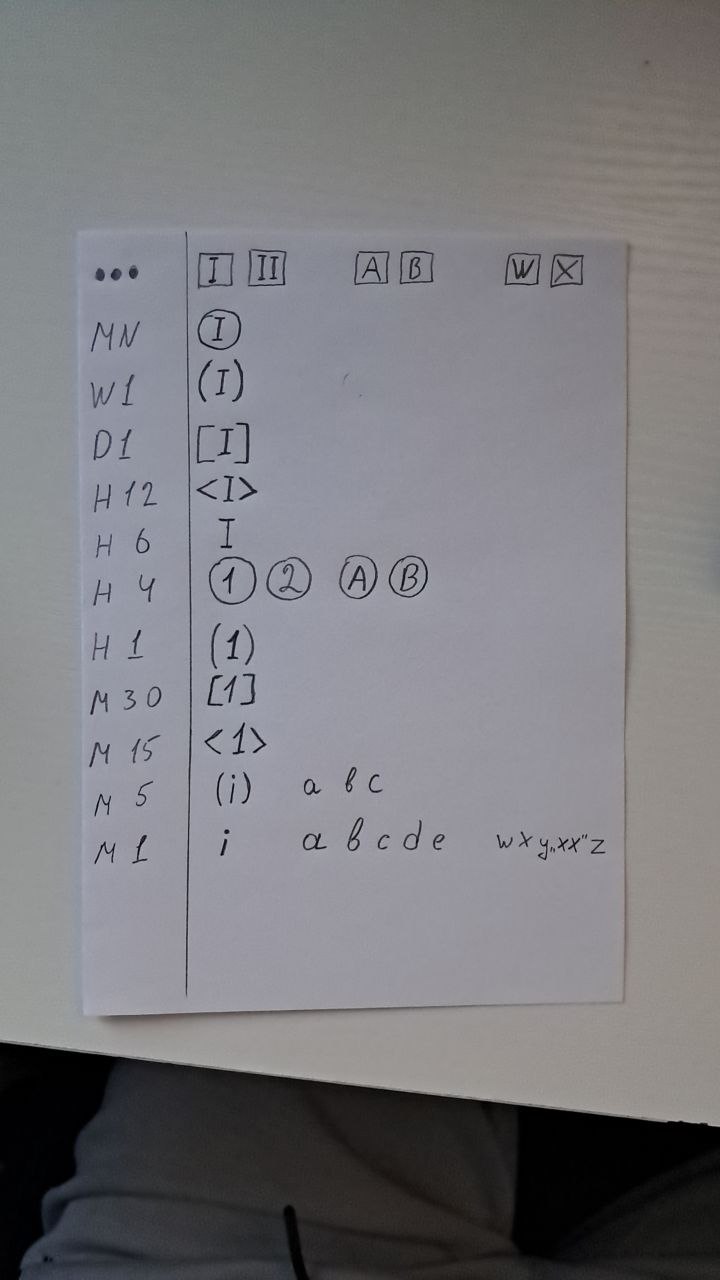 ••• I II A B W X
MN I
W1 (I)
D1 [I]
H 12 <I>
H 6 I
H 4 1 2 A B
H 1 (1)
M 30 [1]
M 15 <1>
M 5 (i) a b c
M 1 i a b c d e w x y„xx" z